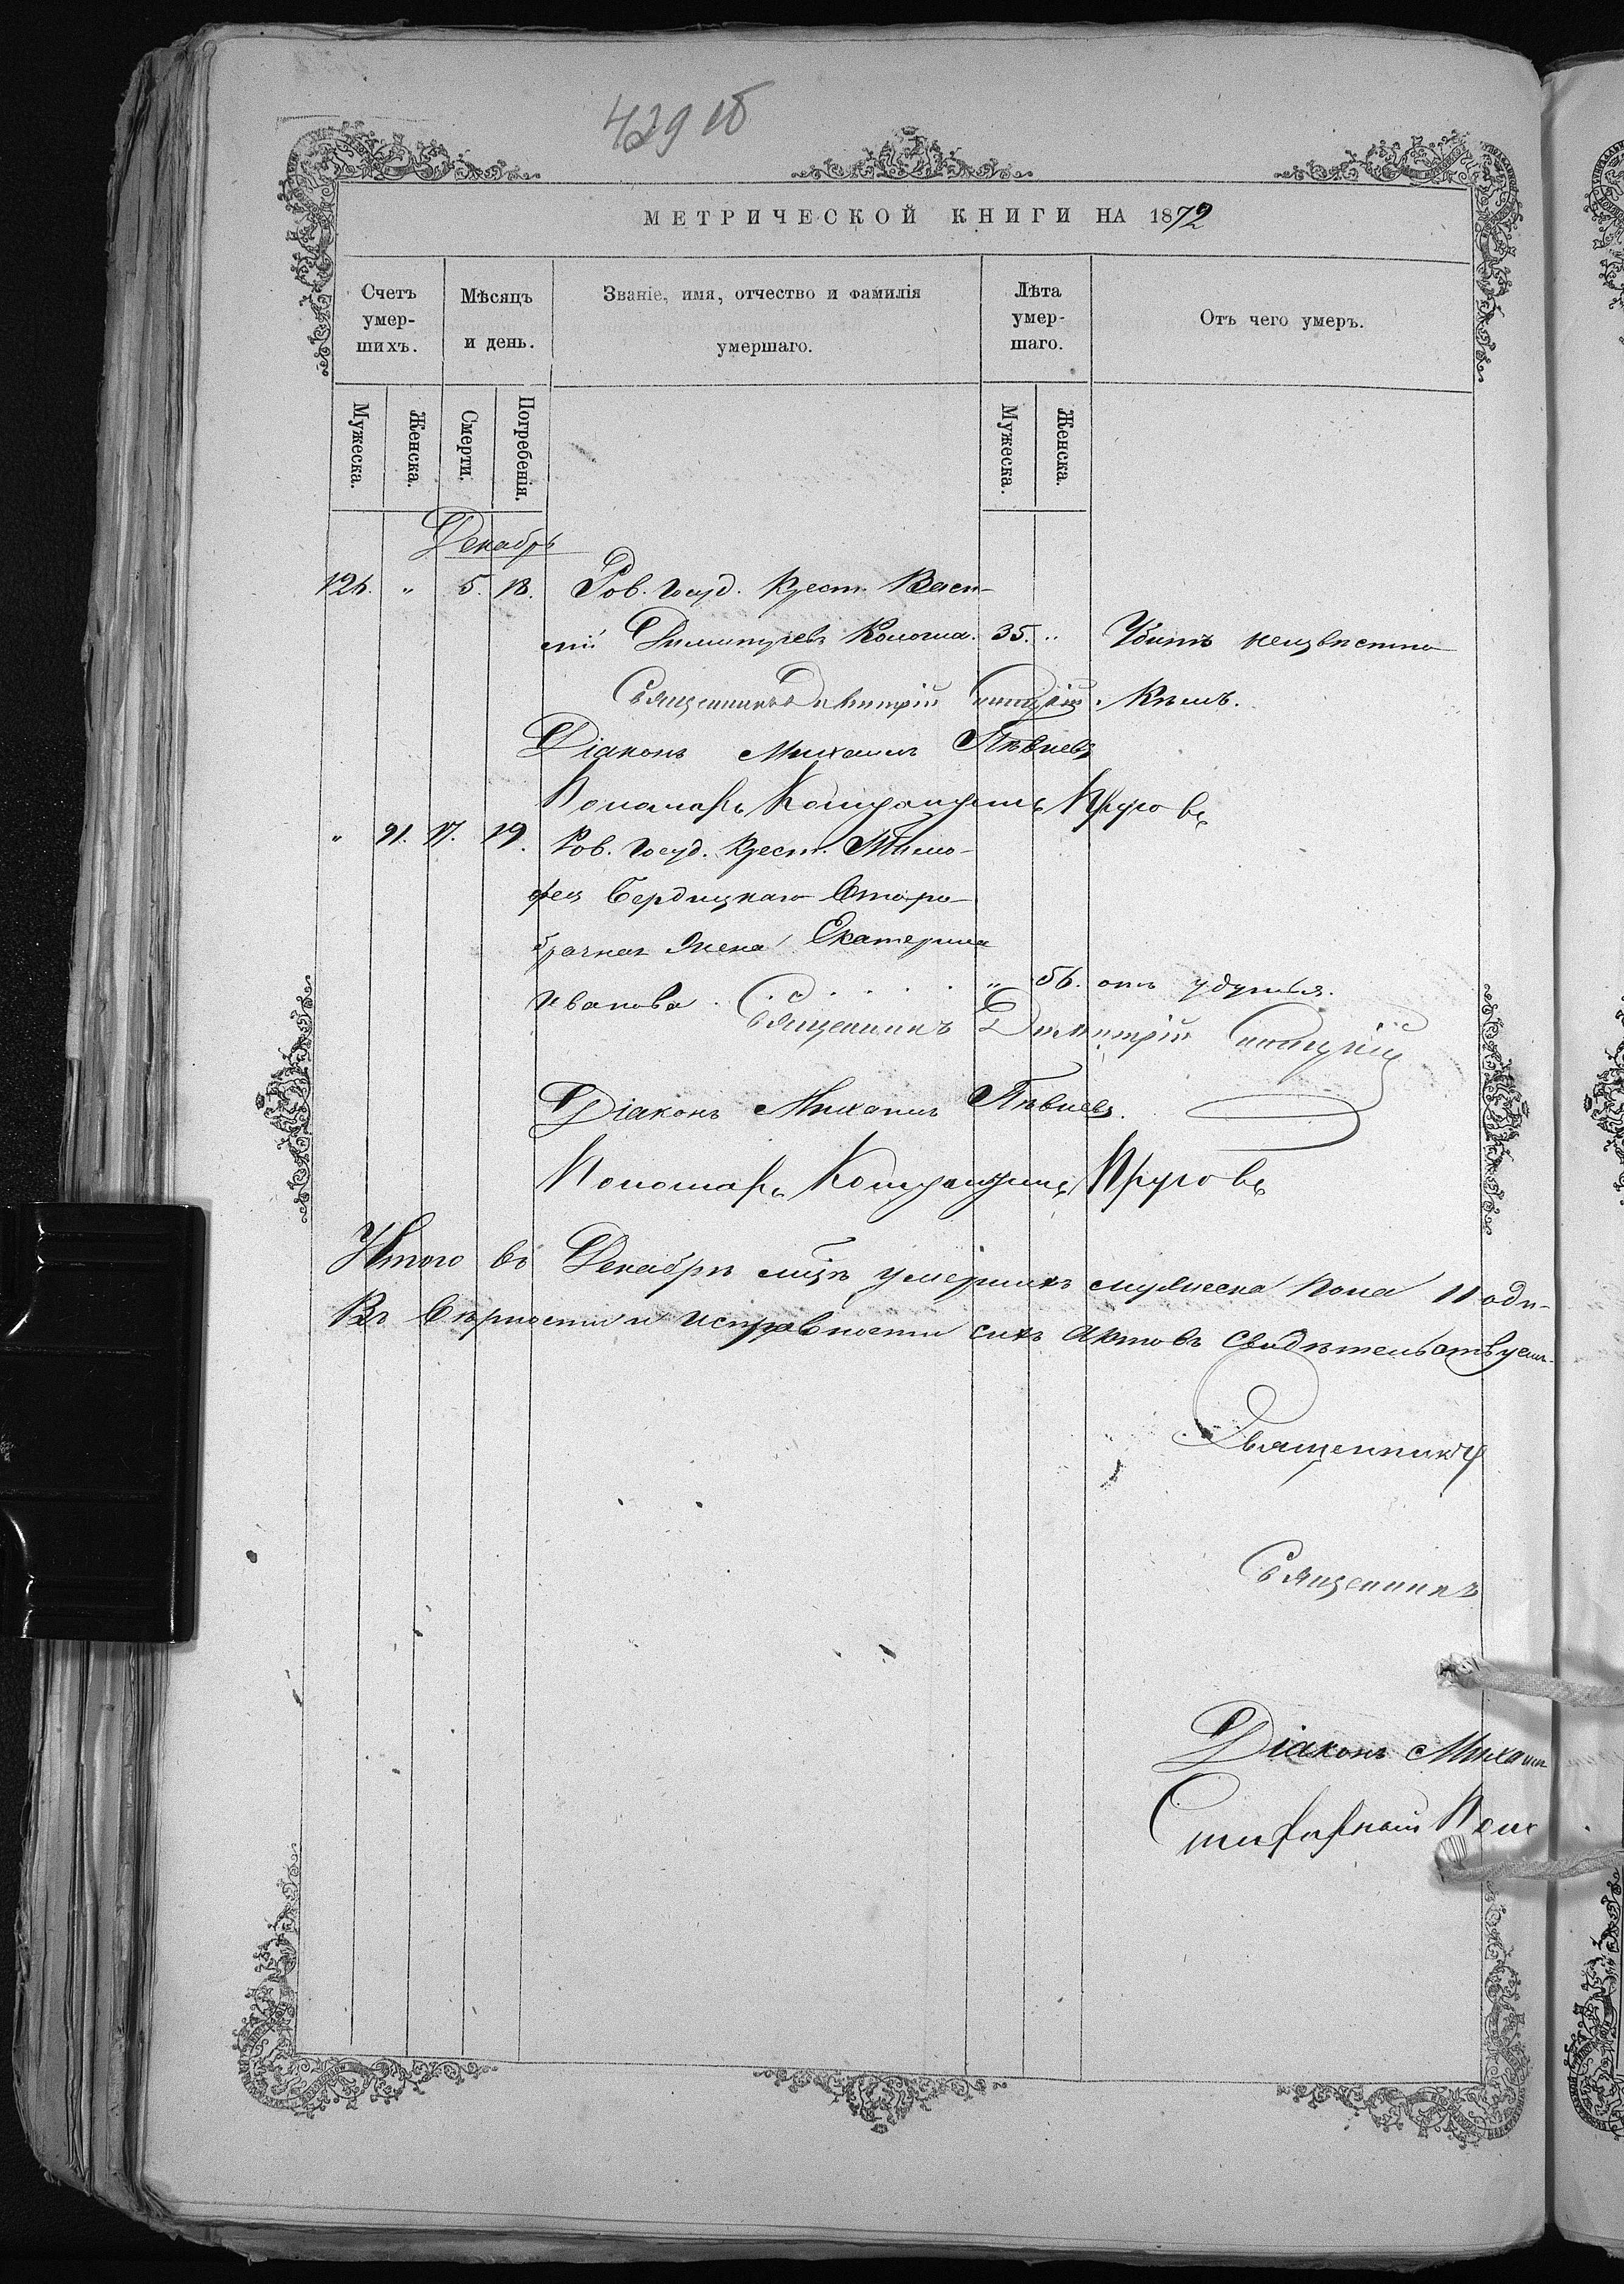 439 об
МЕТРИЧЕСКОЙ КНИГИ НА 1872
Счетъ умер-шихъ.
Мѣсяцъ и день.
Званіе, имя, отчество и фамилія умершаго.
Лѣта умер-шаго.
Отъ чего умеръ.
Мужеска.
Женска.
Смерти.
Погребенія.
Мужеска.
Женска.
Декабрь
124. " 5. 18. Ров. Госуд. Крест. Васи-
лій Димитріевъ 35. " Убитъ неизвѣстно
Священникъ Димитрій кѣмъ.
Діаконъ Михаилъ Пѣвневъ
Пономарь Кондратъ Круговъ
" 91. 17. 19. Ров. Госуд. Крест. Тимо-
фея Бердицкаго Второ-
брачная Жена Екатерина
Иванова . . . . . " 56. отъ удушья.
Священникъ Димитрій
Діаконъ Михаилъ Пѣвневъ.
Пономарь Кондратъ Круговъ
Итого въ Декабрѣ м-цѣ умершихъ мужеска пола 11 оди-
Въ вѣрности и исправности сихъ актовъ свидѣтельствуемъ
Священникъ
Священникъ
Діаконъ Михаилъ